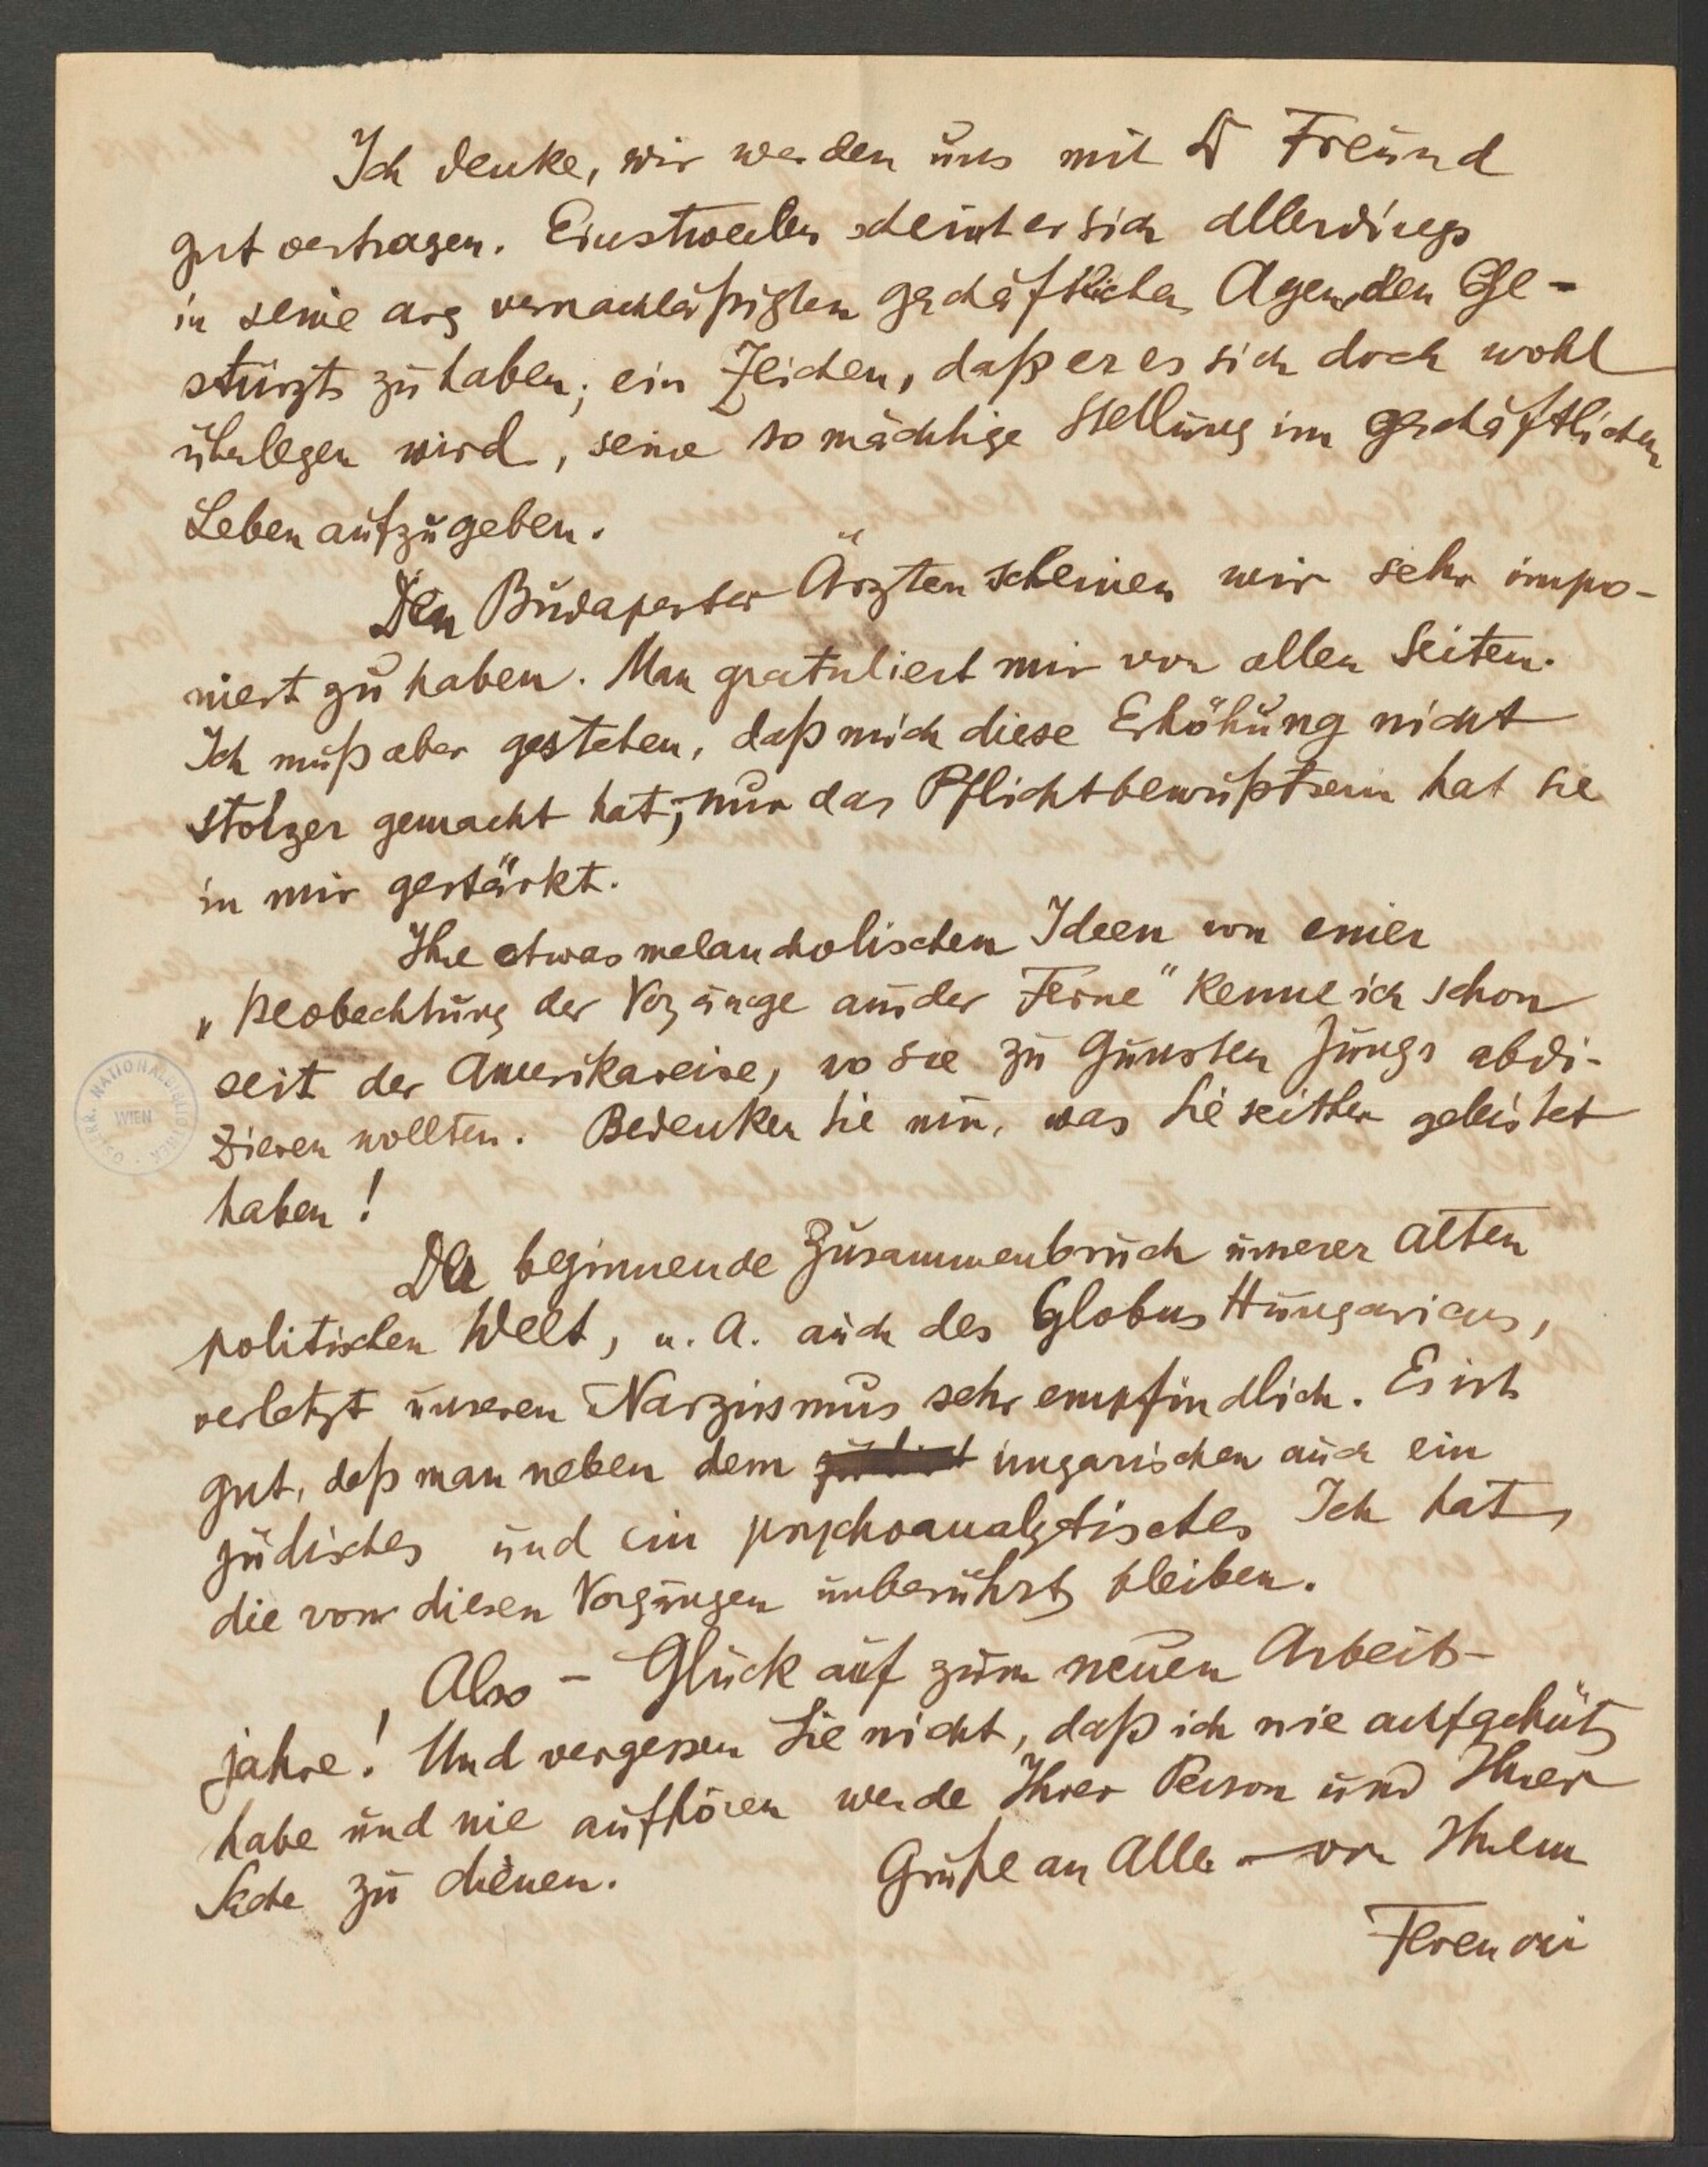 Ich denke, wir werden uns mit Dr Freund
gut vertragen. Einstweilen scheint er sich allerdings
in seine arg vernachläßigten geschäftlichen Agenden ge-
stürzt zu haben; ein Zeichen, daß er es sich doch wohl
überlegen wird, seine so mächtige Stellung im geschäftlichen
Leben aufzugeben.
Den Budapester Ärzten scheinen wir sehr impo-
niert zu haben. Man gratuliert mir von allen Seiten.
Ich muß aber gestehen, daß mich diese Erhöhung nicht
stolzer gemacht hat; nur das Pflichtbewußtsein hat sie
in mir gestärkt.
Ihre etwas melancholischen Ideen von einer
„Beobachtung der Vorgänge aus der Ferne" kenne ich schon
seit der Amerikareise, wo Sie zu Gunsten Jungs abdi-
zieren wollten. Bedenken Sie nun, was Sie seither geleistet
haben!
Der beginnende Zusammenbruch unserer alten
politischen Welt, u. A. auch des Globus Hungaricus,
verletzt unseren Narzismus sehr empfindlich. Es ist
gut, daß man neben dem ungarischen auch ein
jüdisches und ein psychoanalytisches Ich hat,
die von diesen Vorgängen unberührt bleiben.
Also – Glück auf zum neuen Arbeits-
jahre! Und vergessen Sie nicht, daß ich nie aufgehört
habe und nie aufhören werde Ihrer Person und Ihrer
Sache zu dienen.
Grüße an Alle von Ihrem
Ferenczi
ÖSTERR. NATIONALBIBLIOTHEK
WIEN